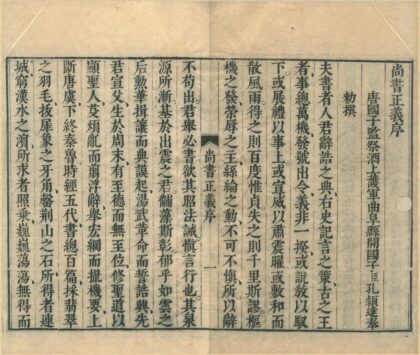 尚書正義序
唐國子監祭酒上護軍曲阜縣開國子臣孔穎達奉
勅撰
夫書者人君辭誥之典右史記言之策古之王
者事總萬機發號出令義非一揆或設教以馭
下或展禮以事上或宣威以肅震曜或敷和而
散風雨得之則百度惟貞失之則千里斯謬樞
機之發榮辱之主絲綸之動不可不慎所以辭
尚書正義序
一
不苟出君舉必書欲其昭法誡慎言行也其泉
源所漸基於出震之君黼藻斯彰郁乎如雲之
后勳華揖讓而典謨起湯武革命而誓誥興先
君宣父生於周末有至德而無至位修聖道以
顯聖人芟煩亂而翦浮辭舉宏綱而撮機要上
斷唐虞下終秦魯時經五代書總百篇採翡翠
之羽毛拔犀象之牙角罄荊山之石所得者連
城窮漢水之濱所求者照乘巍巍蕩蕩無得而